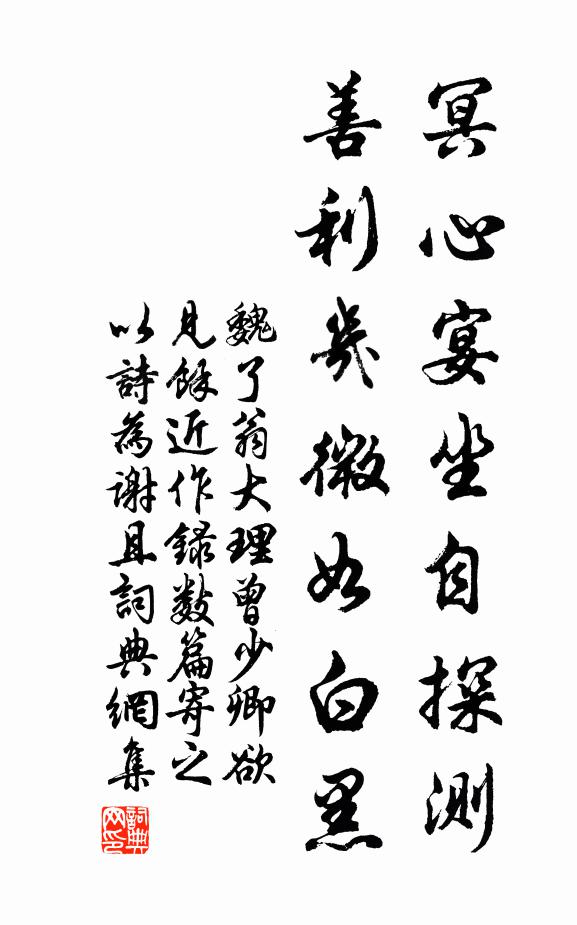 冥心宴坐自探測
善利幾微如白黑
魏了翁大理曾少卿欲
見餘近作錄數篇寄之
以詩為謝且詞典網集
詞典網印